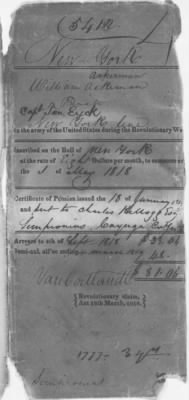 5412
New York
Ackerman
William Ackerman
Priv
Capt Ten Eyck
New York line
in the army of the United States during the Revolutionary W
Inscribed on the Roll of New York
at the rate of Eight Dollars per month, to commence on
the 1 of May 1818
Certificate of Pension issued the 18 of January
and sent to Charles Kellogg Esq
Sempronius Cayuga
Arrears to 4th of Sept 1818
Semi-anl. all'ce ending 48.
Van Cortlandt
Revolutionary claim,
Act 18th March, 1818.
1777
Sempronius